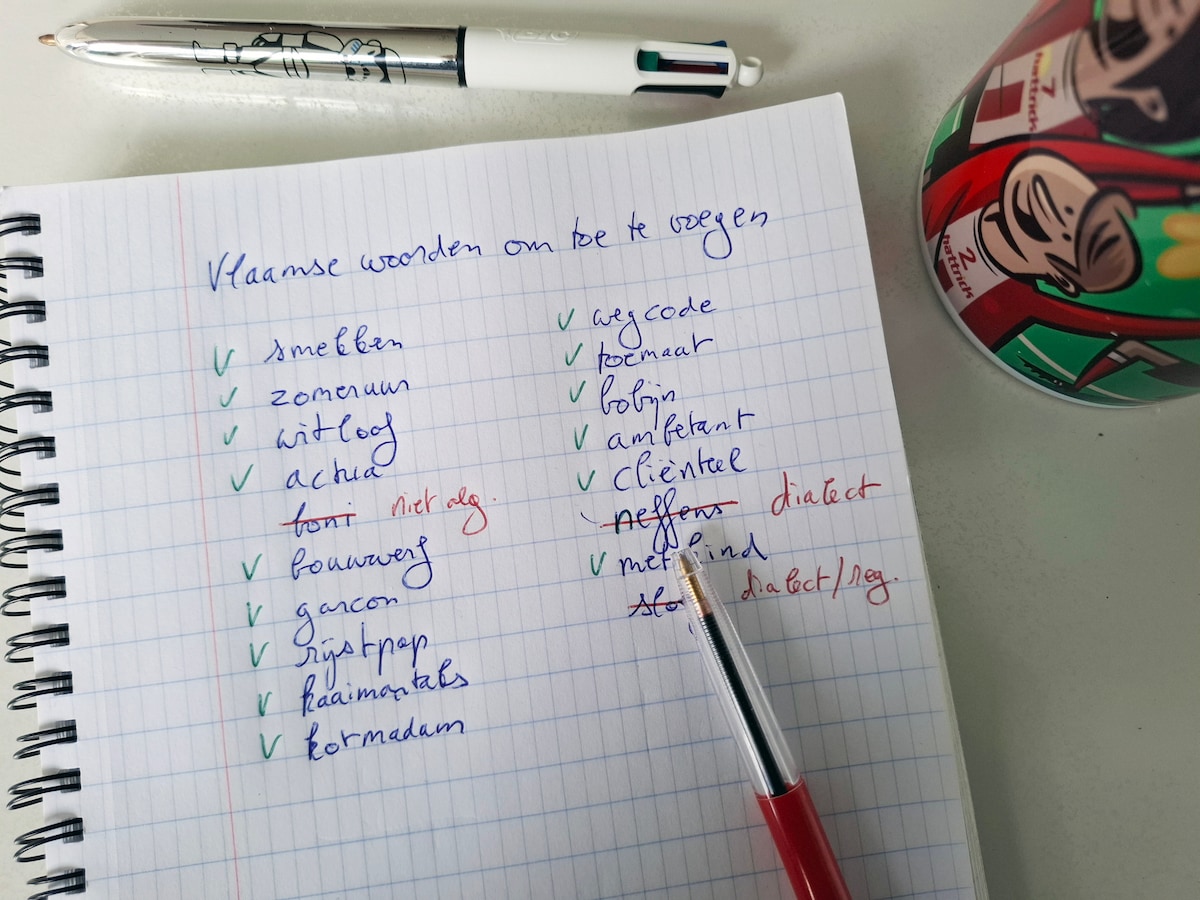 Vlaamse woorden om toe te voegen
smekken
zomeruur
witloof
actua
niet alg.
bouwwerf
garcon
rijstpap
kaaimantaks
kotmadam
wegcode
toemaat
bobijn
ambetant
cliënteel
neffens dialect
dialect/reg.
7
hattrick
2
hattrick